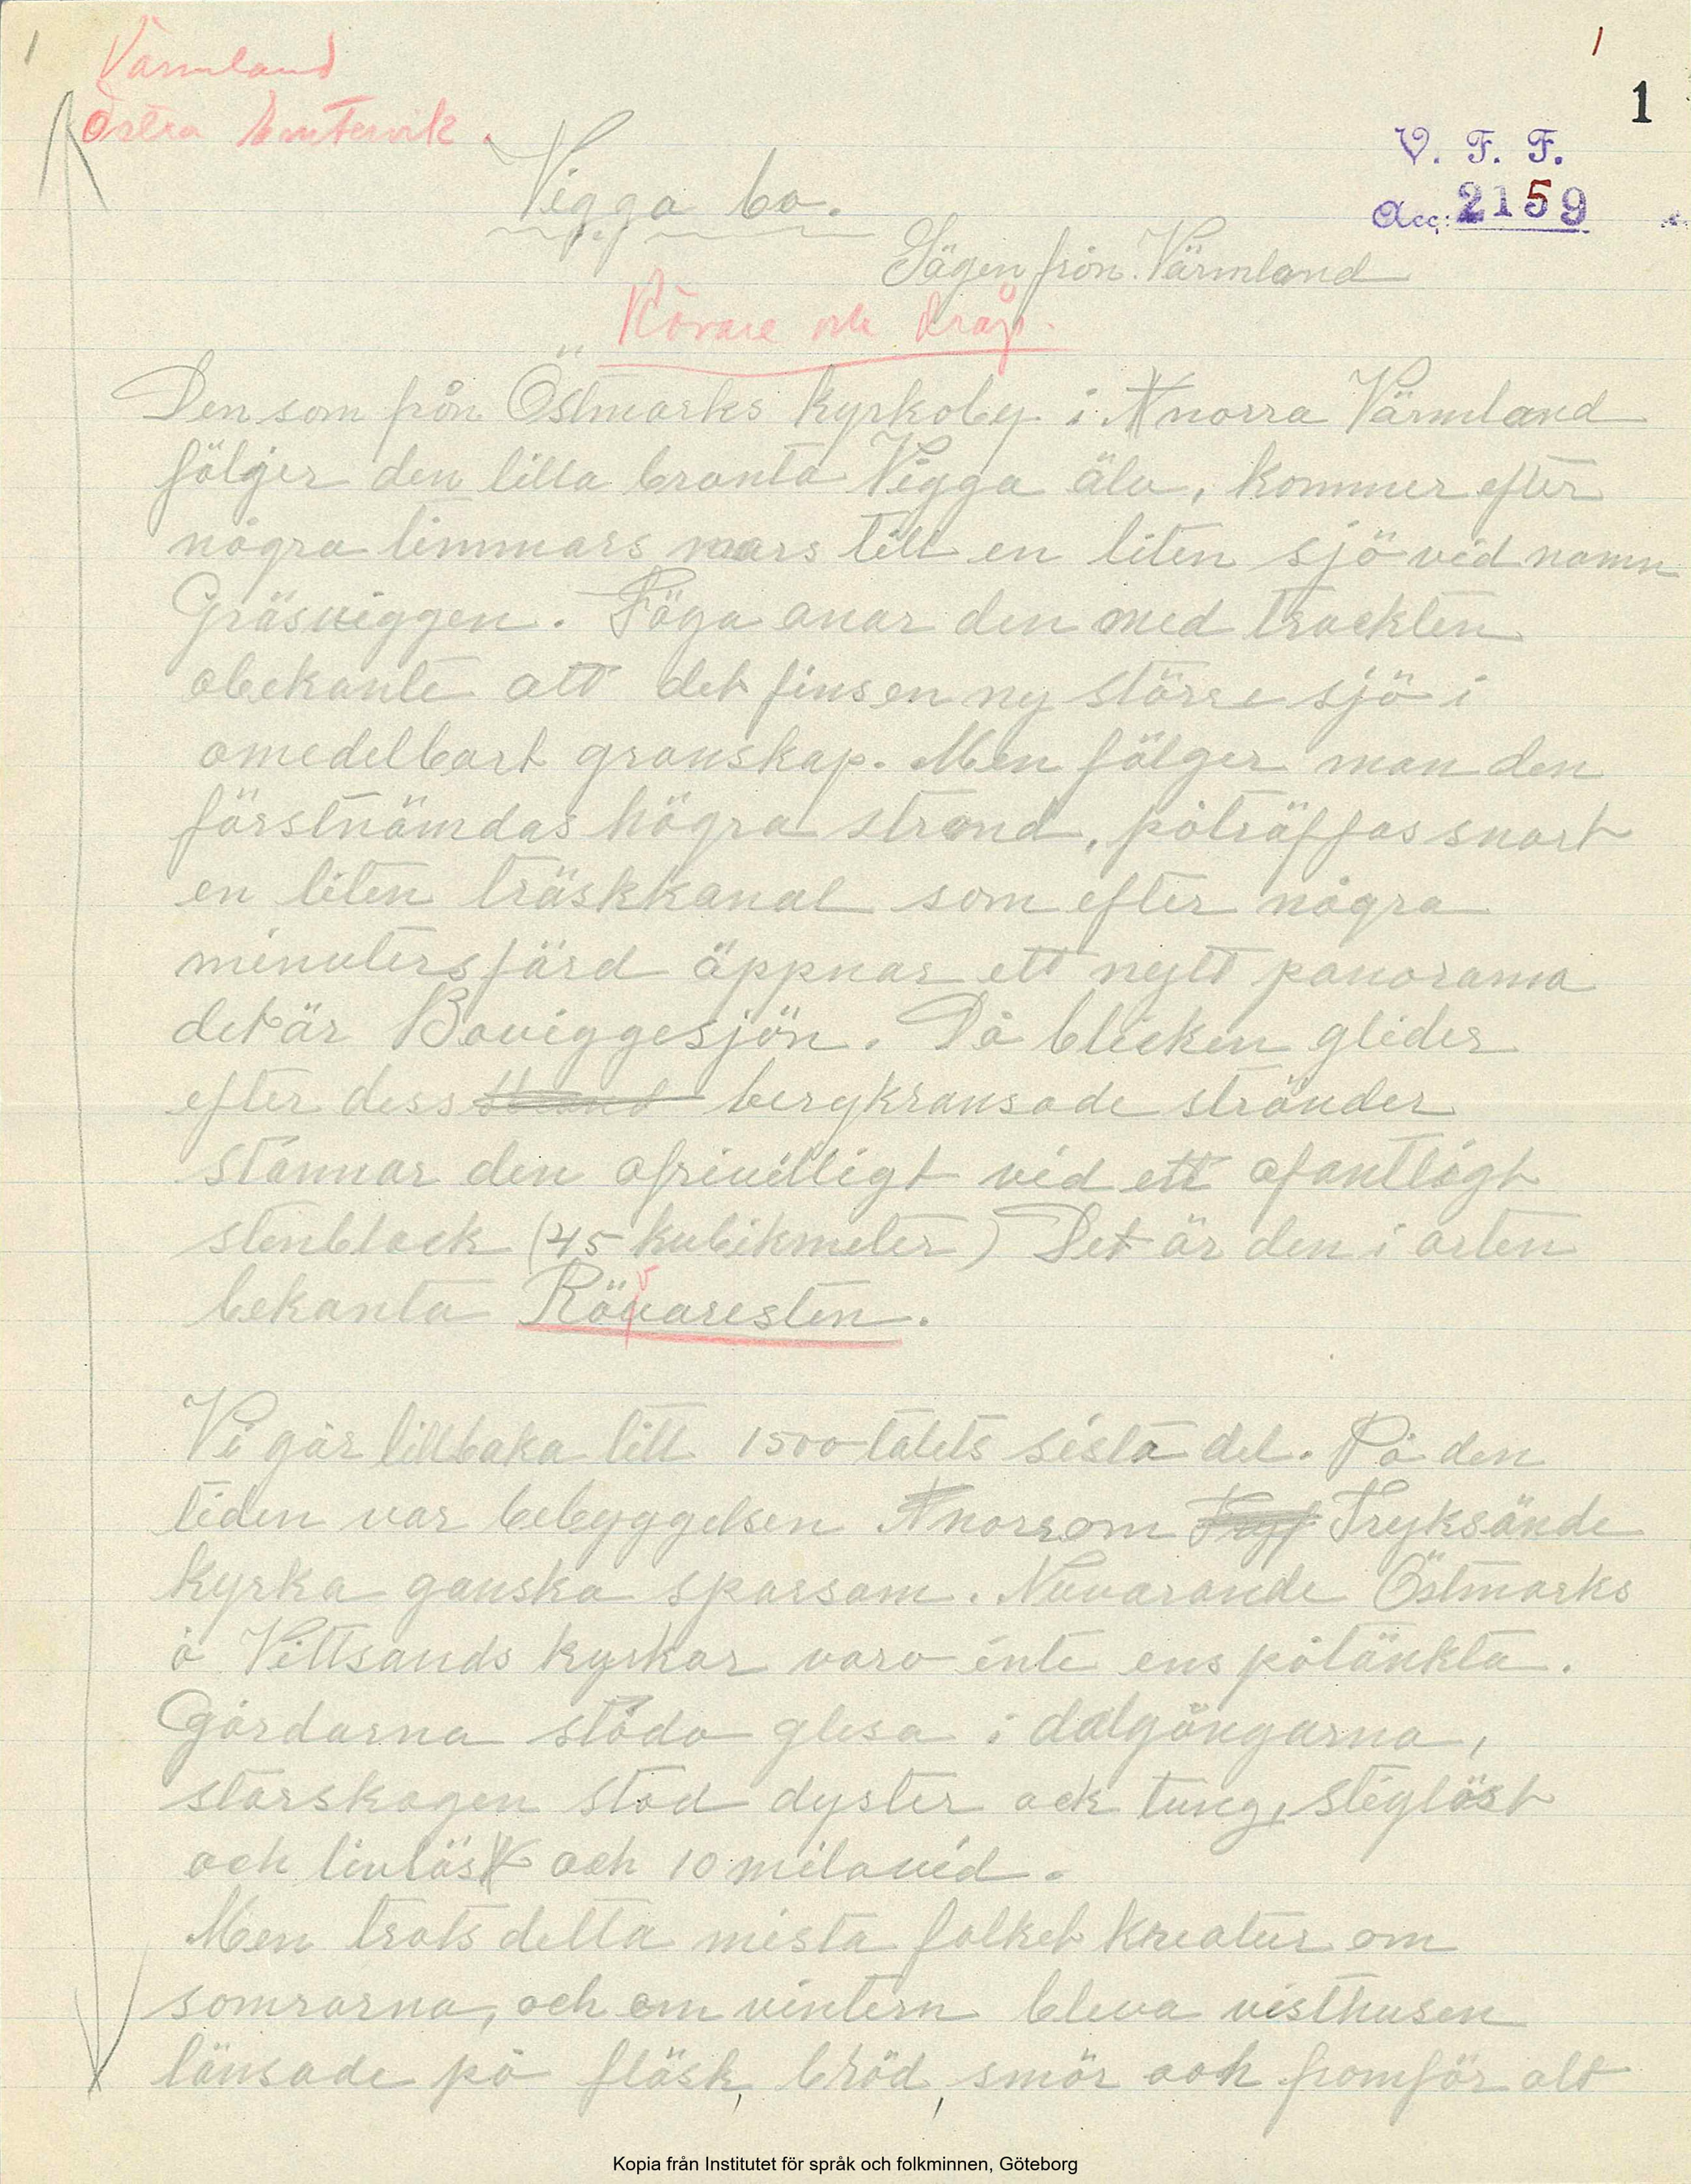 1
Värmland
Östra Ämtervik.
1
1
V. F. F.
Acc: 2159
Vigga bo.
Sägen från Värmland
Rövare och dråp.
Den som från Östmarks kyrkoby i norra Värmland
följer den lilla branta Vigga älv, kommer efter
några timmars mars till en liten sjö vid namn
Gräsviggen. Föga anar den med trackten
obekante att det fins en ny större sjö i
omedelbart granskap. Men fölger man den
förstnämdas högra strand, påträffas snart
en liten träskkanal som efter några
minuters färd äppnar ett nytt panorama
det är Boviggesjön. Då blicken glider
efter dess strand bergkransade stränder
stannar den ofrivilligt vid ett ofantligt
stenblock (45 kubikmeter) Det är den i orten
bekanta Rövaresten.
Vi går tillbaka till 1500 talets sista del. På den
tiden var bebyggelsen norrom Fryksände
kyrka ganska sparsam. Nuvarande Östmarks
å Vittsands kyrkor voro inte ens påtänkta.
Gårdarna stådo glesa i dalgångarna,
storskogen stod dyster ock tung, stiglöst
och livlös och 10 milavid.
Men trots detta mista folket kreatur om
somrarna, och om vintern bleva visthusen
länsade på fläsk, bröd, smör och fromför alt
Kopia från Institutet för språk och folkminnen, Göteborg